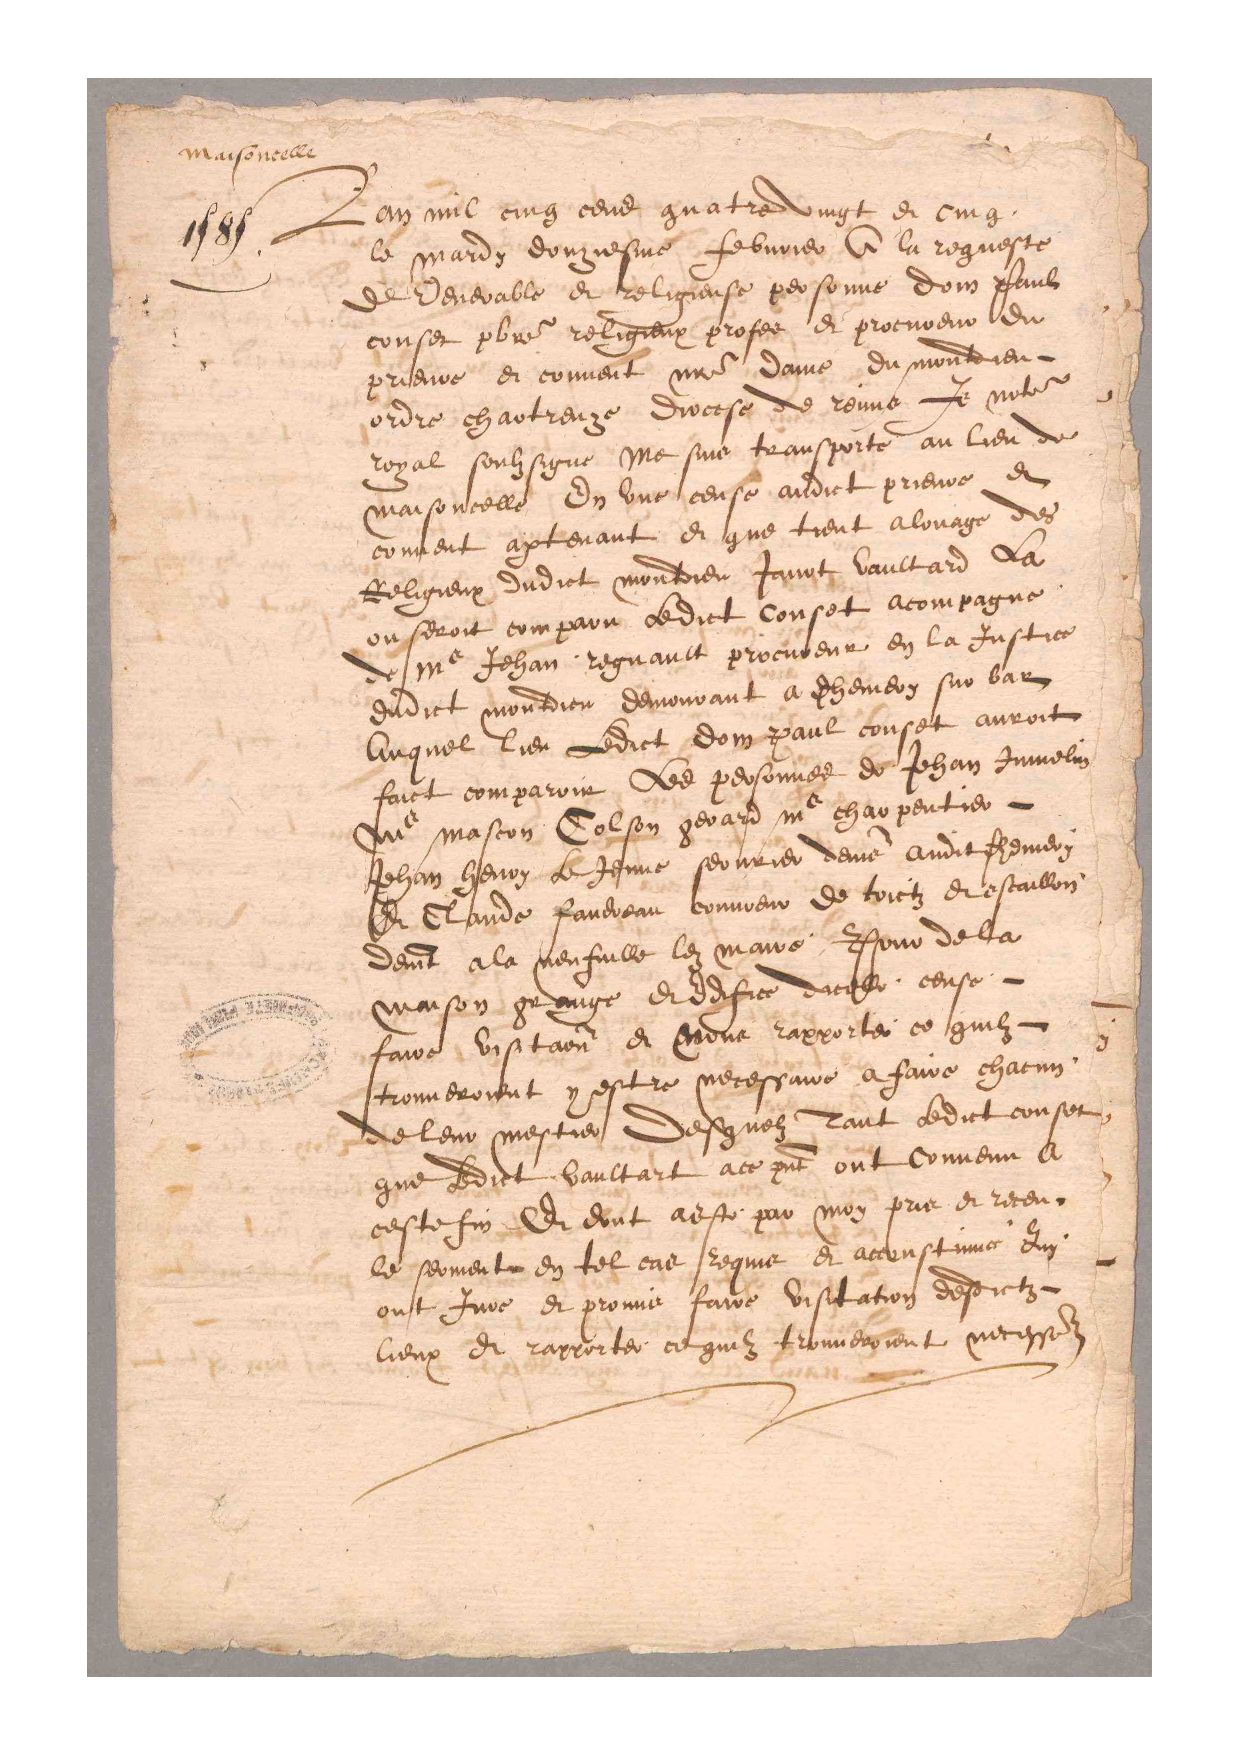 Maisoncelle
1585.
Lan mil cinq cens quatre vingt et cinq
le mardy douziesme febvrier A la requeste
de Venerable et religieuse personne dom Paul
conset pbre religieux profes et procureur du
prieure et couvent nre dame du montdieu
ordre chartreuze diocese de reims Je notre
royal soubzsigne Me suis transporte au lieu de
maisoncelle En une cense audict prieure et
couvent aptenant et que tient a louage des
Religieux dudict montdieu Janot Vaultard La
ou seroit comparu Ledict Conset acompagne
de Me Jehan regnault procureur en la Justice
dudict montdieu demourant a Chemery sur bar
Auquel lieu Ledict dom Paul conset auroit
faict comparoir Les personnes de Jehan Jumelin
Me masson Colson gerard me charpentier
Jehan henry Le Jeune serurier demt audit Chemery
Et Claude faudreau couvreur de toictz et escaillon
demt a la neufville lez maire Pour de la
maison grange et Edifice dicelle cense
faire visitaon et Nous rapporter ce quilz
trouveroient y estre necessaire a faire chacun
de leur mestier Desquelz Tant Ledict conset
que Ledict Vaultart ace pnt ont Convenu A
ceste fin Et dont a este par moy pris et receu
le serment en tel cas requis et accoustume Quy
ont Jure et promis faire visitation desdictz
lieux Et rapporter ce quilz trouveroient necessre